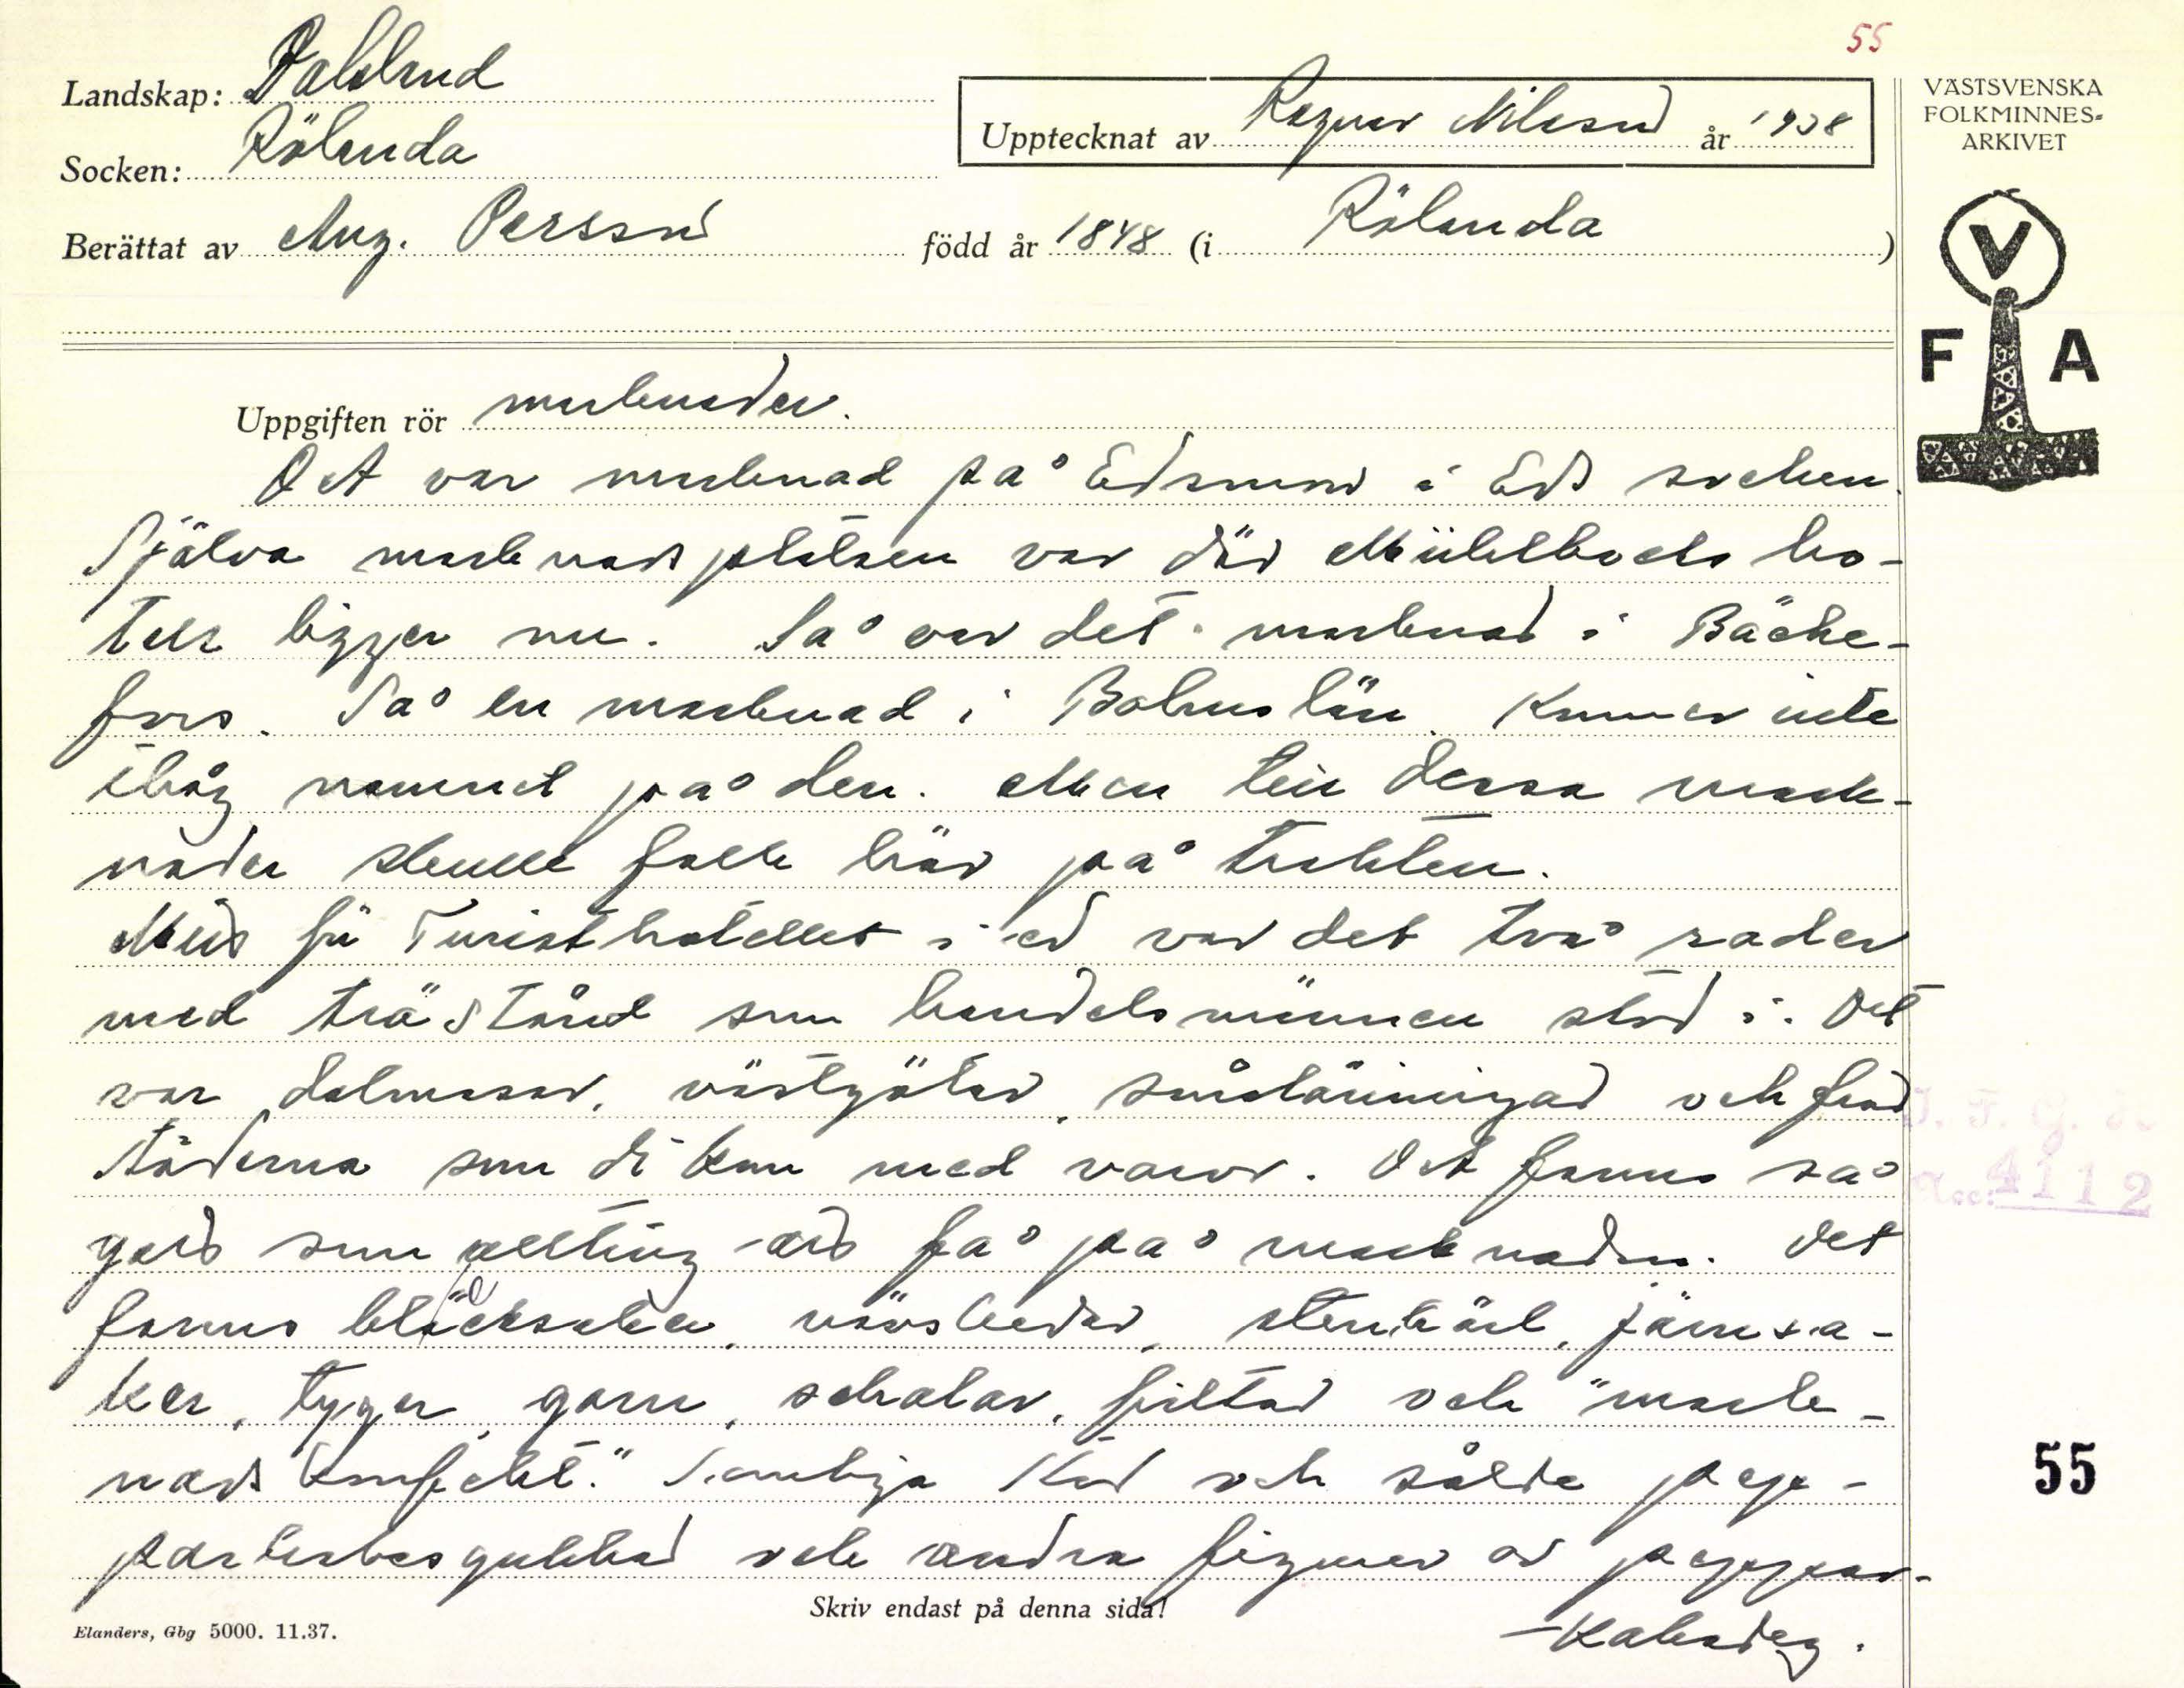 55
Landskap: Dalsland
Socken: Rölanda
Upptecknat av Ragnar Nilsson år 1938
Berättat av Aug. Persson född år 1848 (i Rölanda )
VÄSTSVENSKA
FOLKMINNES-
ARKIVET
V
F A
Uppgiften rör marknader.
Det var marknad på Edsmon i Eds socken.
Själva marknadsplatsen var där Mühlbocks ho-
tell ligger nu. Så var det marknad i Bäcke-
fors. Så en marknad i Bohuslän. Kommer inte
ihåg namnet på den. Men till dessa mark-
nader skulle folk här på trakten.
Mitt för Turisthotellet i ed var det två rader
med trästånd som handelsmännen stod i. Det
var dalmasar, västgötar, smålänningar och från
städerna som di kom med varor. Det fanns så
gott som allting att få på marknaden. Det
fanns bläcksaker, vävskedar, stenkärl, järnsa-
ker, tyger, garn, schalar, filtar och "mark-
nadskonfekt." Somliga stod och sålde pep-
parkaksgubbar och andra figurer av peppar-
-kaksdeg.
Skriv endast på denna sida!
Elanders, Gbg 5000. 11.37.
Acc: 4112
55